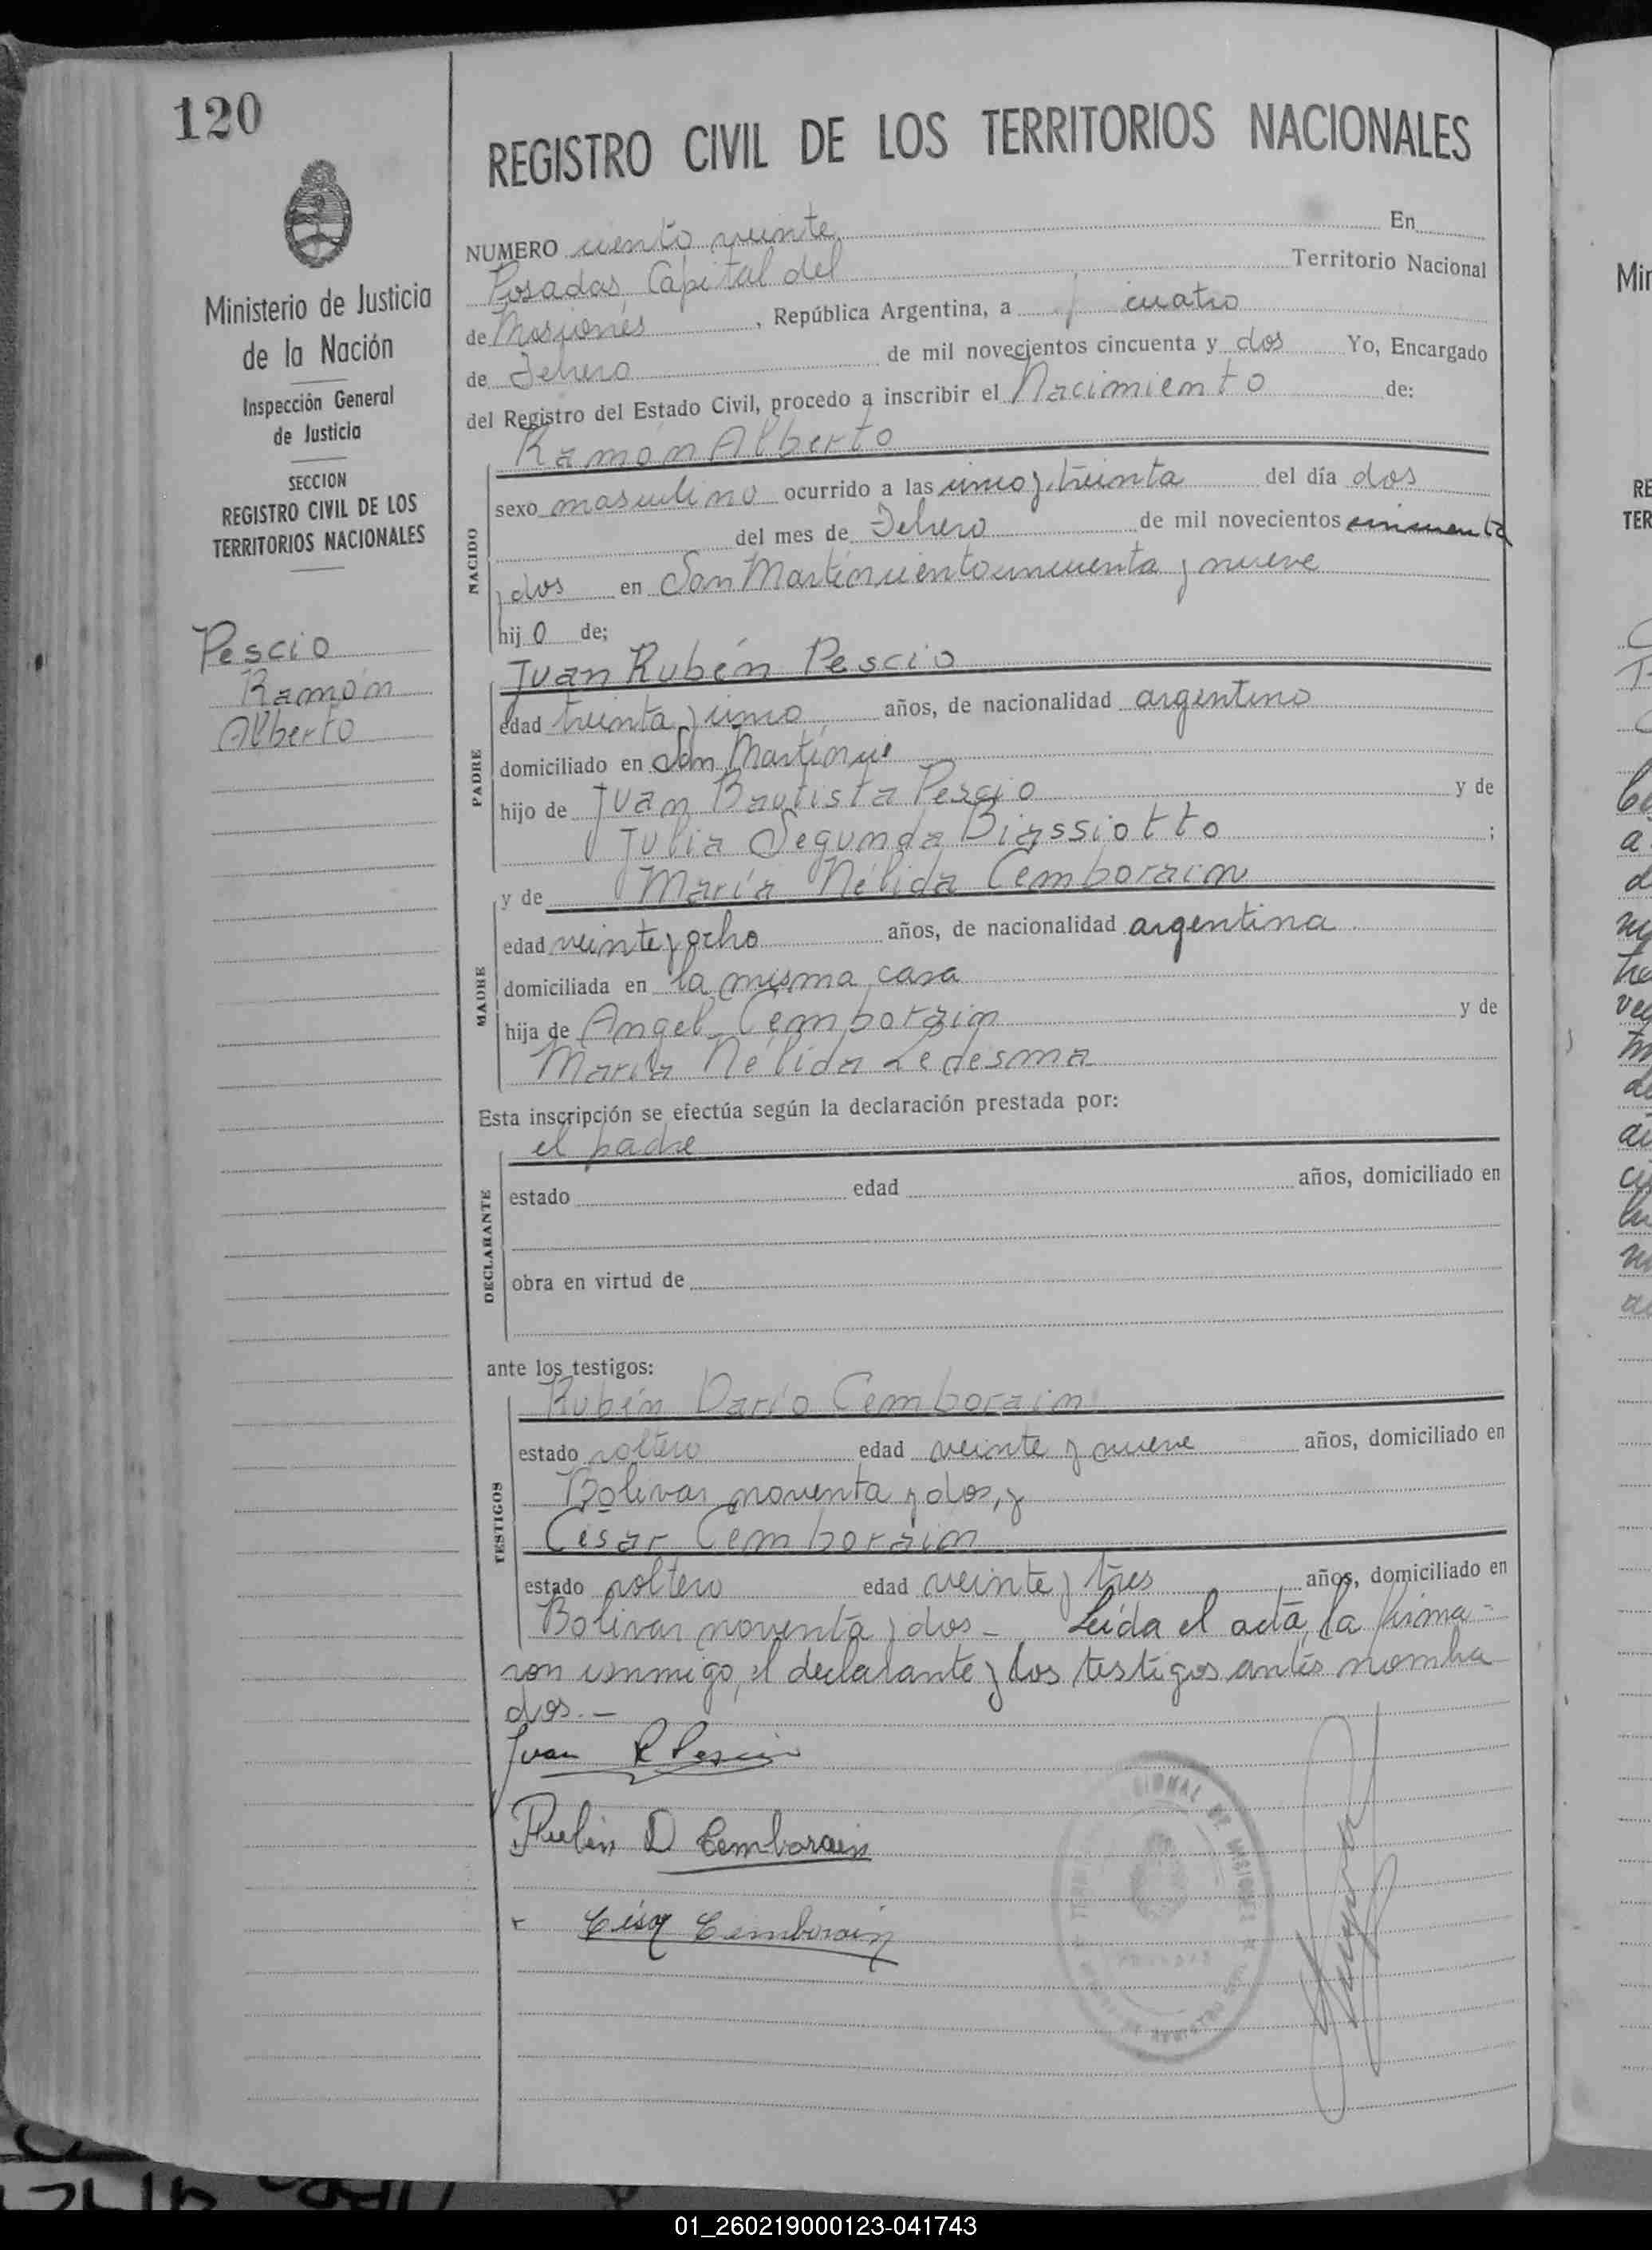 120
REGISTRO CIVIL DE LOS TERRITORIOS NACIONALES
Ministerio de Justicia
de la Nación
Inspección General
de Justicia
SECCION
REGISTRO CIVIL DE LOS
TERRITORIOS NACIONALES
Pescio
Ramón
Alberto
NUMERO ciento veinte En
Posadas, Capital del Territorio Nacional
de Misiones, República Argentina, a cuatro
de Febrero de mil novecientos cincuenta y dos Yo, Encargado
del Registro del Estado Civil, procedo a inscribir el Nacimiento de:
Ramón Alberto
NACIDO
sexo masculino ocurrido a las cinco y treinta del día dos
del mes de Febrero de mil novecientos cincuenta
y dos en San Martín ciento cincuenta y nueve
hijo de;
Juan Rubén Pescio
PADRE
edad treinta y cinco años, de nacionalidad argentino
domiciliado en San Martín
hijo de Juan Bautista Pescio y de
Julia Segunda Biassiotto ;
y de María Nélida Cemborain
MADRE
edad veinte y ocho años, de nacionalidad argentina
domiciliada en la misma casa
hija de Angel Cemborain y de
María Nélida Ledesma
Esta inscripción se efectúa según la declaración prestada por:
el padre
DECLARANTE
estado edad años, domiciliado en
obra en virtud de
ante los testigos:
Rubén Darío Cemborain
TESTIGOS
estado soltero edad veinte y nueve años, domiciliado en
Bolivar noventa y dos, y
César Cemborain
estado soltero edad veinte y tres años, domiciliado en
Bolivar noventa y dos - Leída el acta, la firma-
ron conmigo, el declarante y los testigos antes nombra
dos.-
Juan R Pescio
Rubén D Cemborain
César Cemborain
Min
RE
TER
01_260219000123-041743